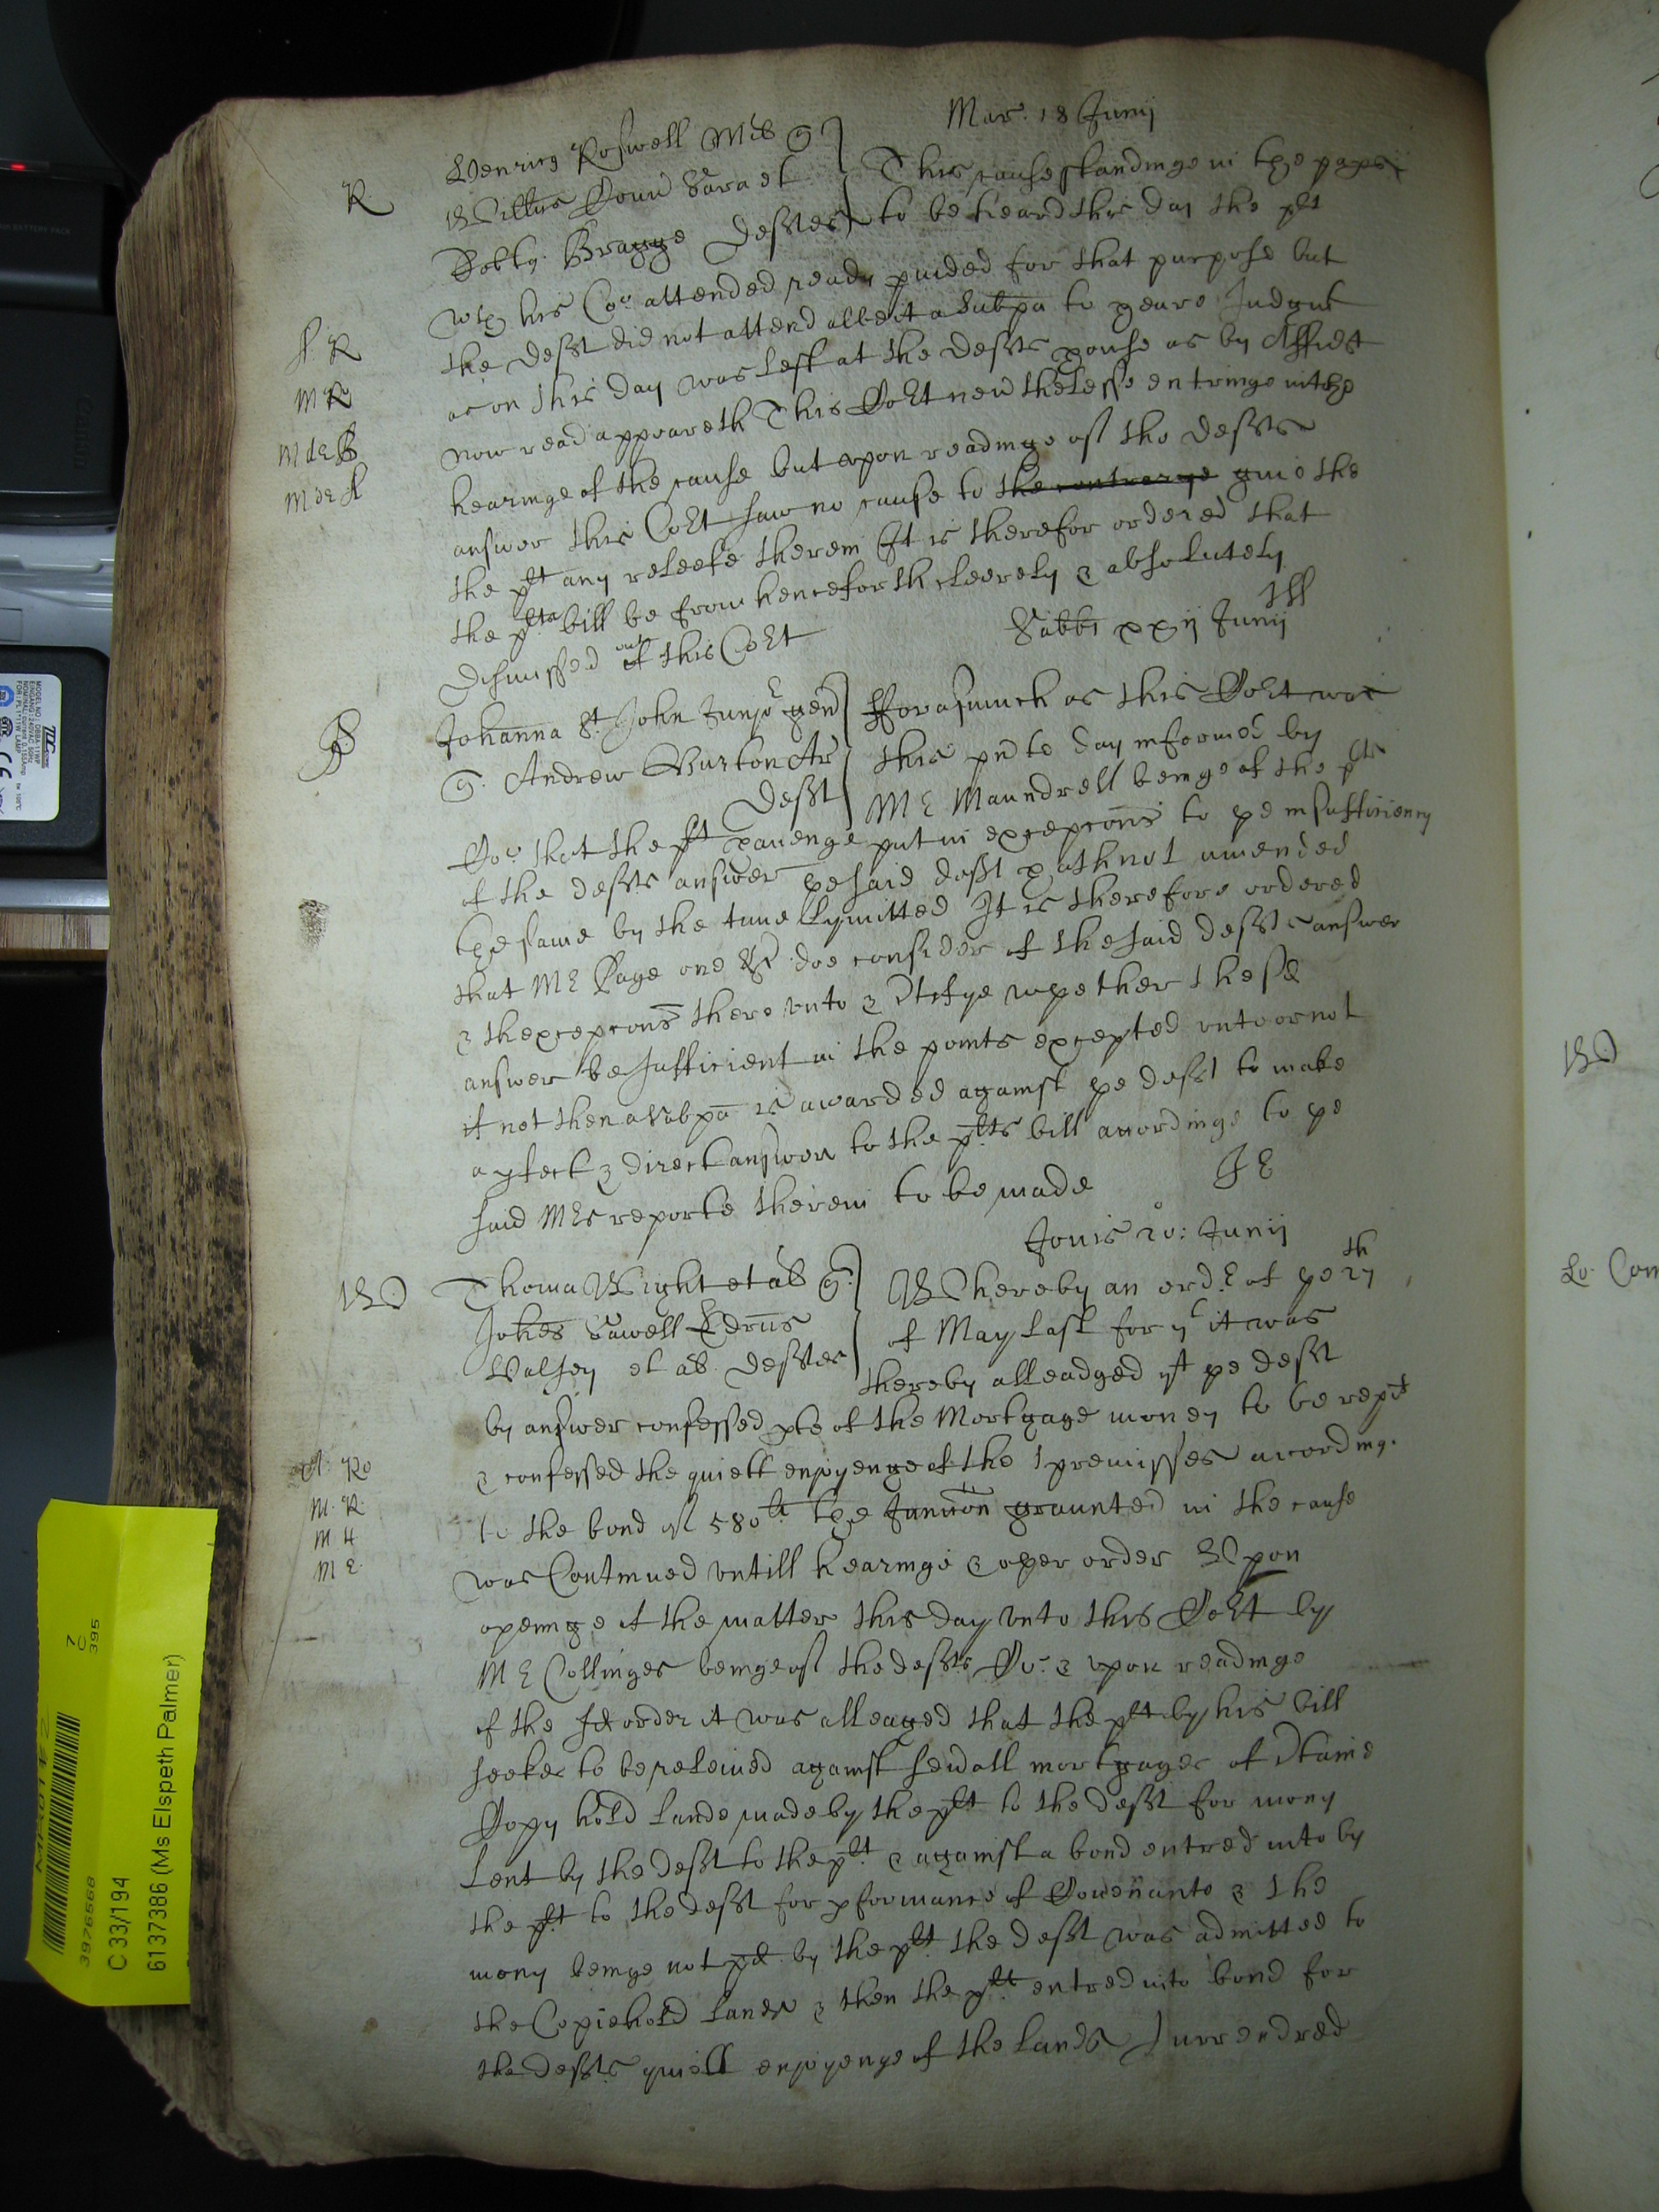 Mar. 18 Junij
R
Henricus Roswell Miles q
Willms Domi Sara et
Dorthy Bragge Defftes
This cause standinge in the paper
to be heard this day the plt
wth his Co: attended ready pvided for that purpose but
the defft did not attend albeit a Subpa to heare Judgmt
as on this day was left at the deffts house as by Affidt
now read appeareth This Cort neverthelesse entringe into the
hearinge of the cause but upon readinge of the deffts
answer this Cort saw no cause to the contrarye give the
the plt any releefe therein It is therefor ordered that
the plts bill be from henceforth cleerely & absolutely
dismissed out of this Cort
f R
M R
M de B
M de f
Sabbi xxij Junij
B
Johanna St John Junjor gen
q. Andrew Burton Ar
Defft
fforasmuch as this Cort was
this pnte day informed by
Mr Maundrell beinge of the plts
Co: that the plt havenge put in excepcons to he insufficiency
of the deffts answer he said defft hath not amended
the same by the time lymitted It is therefore ordered
that Mr Page one &c doe consider of the said deffts answer
& thexcepcons there unto & Ctefye whether the sd
answer be sufficient in the points excepted unto or not
if not then a Subpa is awarded against he defft to make
a pfect & direct answer to the plts bill accordinge to he
said Mrs reporte therein to be made
Jovis 20: Junij
W
Thoma Wright et al q
Johes Sawell Edrus
Halsey et al defftes
Whereby an ordr of he 27th
of May last for yt it was
thereby alleadged yt he defft
by answer confessed pte of the Mortgage money to be repd
& confessed the quiett enjoyenge of the premisses according
to the bond of 580lt the Junccon graunted in the cause
was Contynued untill hearinge & oher order Upon
openinge of the matter this day unto this Cort by
Mr Collinges beinge of the deffts Co: & upon readinge
of the sd order it was alleaged that the plt by his bill
seekes to be releived against sevrall mortgages of Ctaine
Copy hold lands made by the plt to the defft for mony
lent by the defft to the plt & against a bond entred into by
the plt to the defft for pformance of Covenants & the
mony beinge not pd by the plt the defft was admitted to
the Copiehold lands & then the plt entred into bond for
the deffts quiett enjoyenge of the lands surrendred
M. R
M H
M E
C 33/194
6137386 (Ms Elspeth Palmer)
3976568
7
C
395